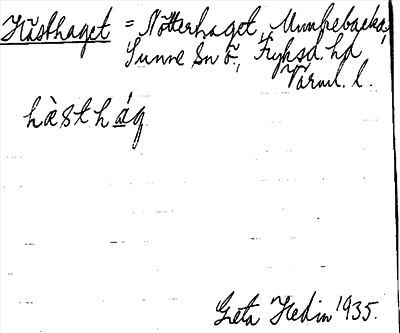 Hästhaget = Nötterhaget, Munkebacka,
Sunne Sn o., Fryksd. hd
Värml. l.
hàsthág
Greta Hedin 1935.